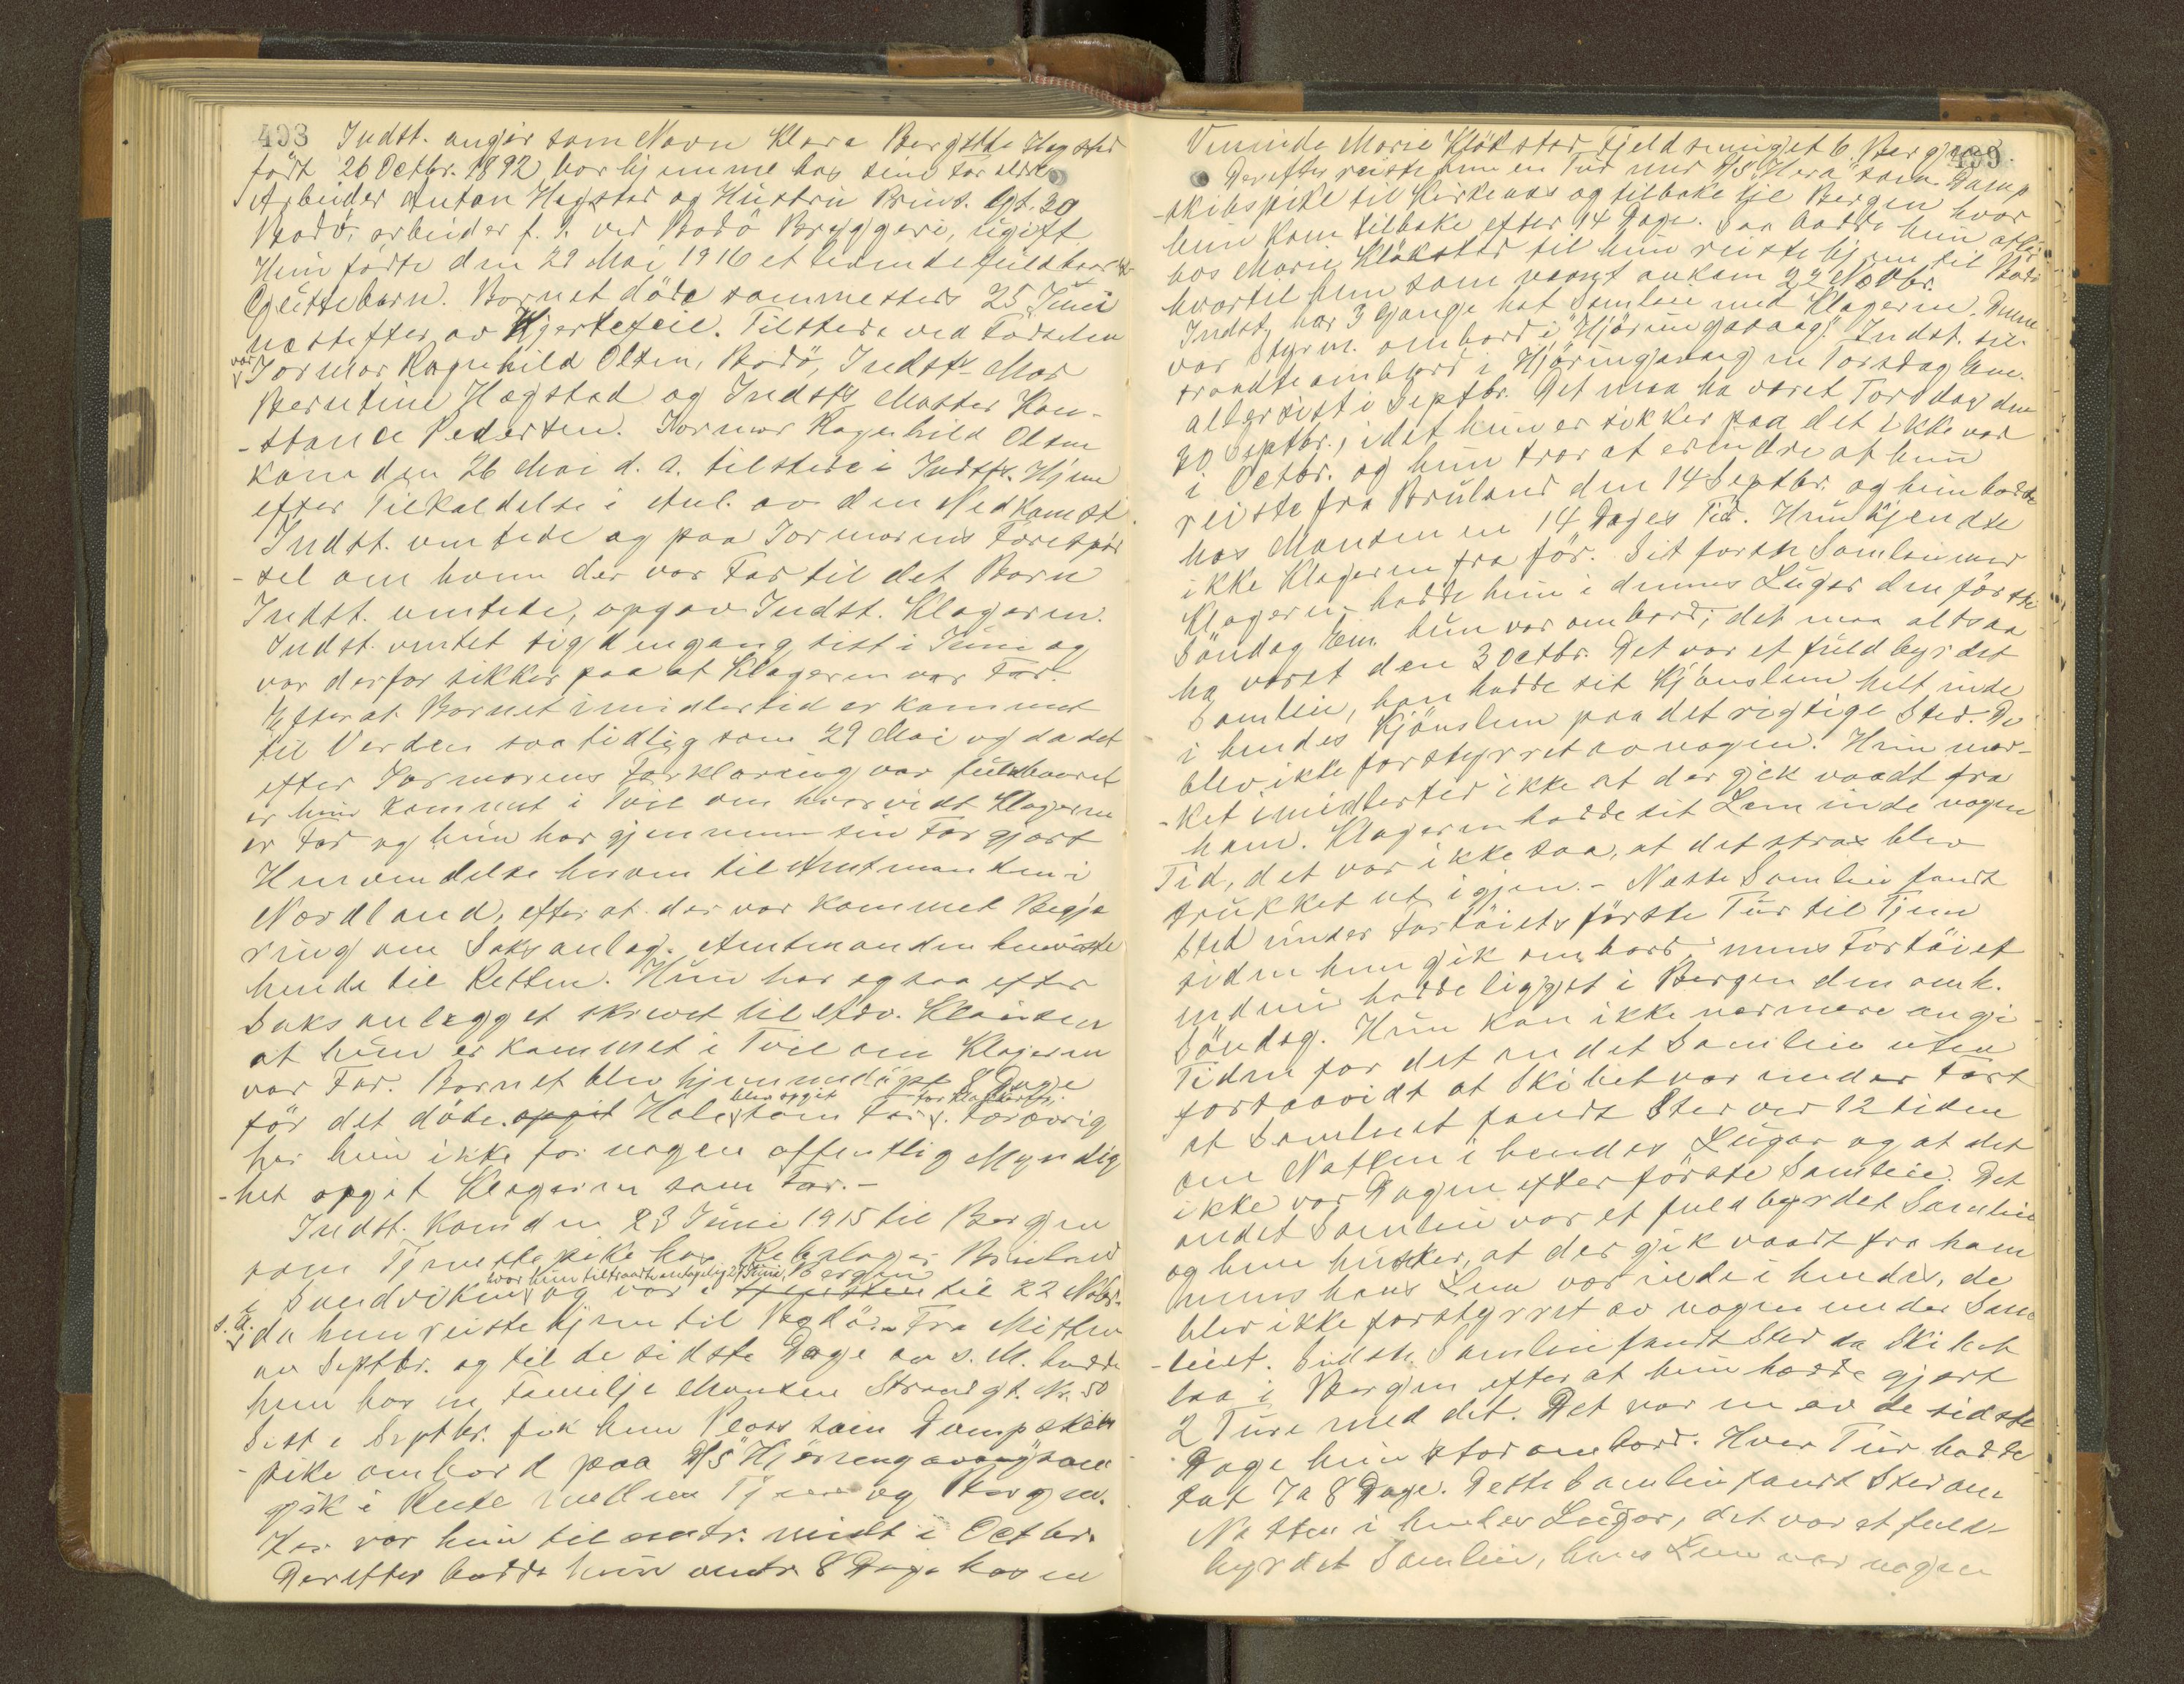 493 Indst. angir som Navn Klara Bergitte Hegstad
født 26 Octbr. 1892, bor hjemme hos sine Forældre
Arbeider Anton Hegstad og Hustru Prins. Gt. 20
Bodø, arbeider f. T. ved Bodø Bryggeri, ugift
Hun fødte den 29 Mai 1916 et levende fuldbaaret
Guttebarn. Barnet døde sammesteds 25 Juni
næstefter av Hjertefeil. Tilstede ved Fødselen
var Jormor Ragnhild Olsen, Bodø, Indsts Mor
Berntine Hegstad og Indsts Moster Kon-
-stance Pedersen. Jormor Ragnhild Olsen
kom den 26 Mai d. A. tilstede i Indsts. Hjem
efter Tilkaldelse i Anl. av den Nedkomst
Indst. ventede og paa Jormorens Forespør
-sel om hvem der var Far til det Barn
Indst. ventede, opgav Indst. Klageren.
Indst. ventet sig dengang sist i Juni og
var derfor sikker paa at Klageren var Far.
Efterat Barnet imidlertid er kommet
til Verden saa tidlig som 29 Mai og da det
efter Jormorens Forklaring var fuldbaaret
er hun kommet i Tvil om hvorvidt Klageren
er Far og hun har gjennem sin Far gjort
Henvendelse herom til Amtmanden i
Nordland, efter at der var kommet Begjæ
ring om Saksanlæg. Amtmanden henviste
hende til Retten. Hun har ogsaa efter
Saksanlegget skrevet til Adv. Klausen
at hun er kommet i Tvil om Klageren
var Far. Barnet blev hjemmedøpt 8 Dage
før det døde. opgit blev opgit som Far for. Forøvrig
har hun ikke for nogen offentlig Myndig
-het opgit Klageren som Far.-
Indst. kom den 23 Juni 1915 til Bergen
som Tjenestepike hos Rebslager Bruland
hvor hun tiltraadte antagelig 27 Juni, Bergen
i Sandviken og var i til 22 Novbr.
s. A. da hun reiste hjem til Bodø.- Fra Midten
av Septbr. og til de sidste Dage av s. M. bodde
hun hos en Familje Monsen Strandgt. Nr. 50
Sist i Septbr. fik hun Plass som Dampskibs
-pike ombord paa D/S "Hjørungavaag" som
gik i Rute mellem Tjene og Bergen.
Her var hun til omtr. midt i Octbr.
Derefter bodde hun omtr. 8 Dage hos en
Veninde Marie Kløkstad Fjeldsmuget 6. Bergen
499
Derefter reiste hun en Tur med D/S "Hera" som Damp
-skibspike til Kirkenes og tilbake til Bergen hvor
hun kom tilbake efter 14 Dage. Saa bodde hun atter
hos Marie Kløkstad til hun reiste hjem til Bodø
hvortil hun som nævnt ankom 22 Novbr.
Indst. har 3 Gange hat Samleie med Klageren. Denne
var Styrm. ombord i "Hjørungavaag". Indst. til-
traadte ombord i Hjørungavaag en Torsdag Em.
allersist i Septbr. Det maa ha været Torsdag den
30 Septbr., idet hun er sikker paa det ikke var
i Octbr. og hun tror at erindre at hun
reiste fra Bruland den 14 Septbr. og hun bodde
hos Monsen en 14 Dages Tid. Hun kjendte
ikke Klageren fra før. Sit første Samleie med
Klageren hadde hun i dennes Lugar den første
Søndag Em. hun var ombord; det maa altsaa
ha været den 3 Octbr. Det var et fuldbyrdet
Samleie, han hadde sit Kjønslem helt inde
i hendes Kjønslem paa det rigtige Sted. De
blev ikke forstyrret av nogen. Hun mær-
-ket imidlertid ikke at der gik vaadt fra
ham. Klageren hadde sit Lem inde nogen
Tid, det var ikke saa, at det strax blev
trukket ut igjen. - Næste Samleie fandt
Sted under Fartøiets første Tur til Tjene
siden hun gik ombord, mens Fartøiet
endnu hadde ligget i Bergen den omh.
Søndag. Hun kan ikke nærmere angi
Tiden for det andet Samleie uten
forsaavidt at Skibet var under Fart
at Samleiet fandt Sted ved 12 tiden
om Natten i hendes Lugar og at det
ikke var Dagen efter første Samleie. Det
andet Samleie var et fuldbyrdet Samleie
og hun husker, at der gik vaadt fra ham
mens hans Lem var inde i hendes, de
blev ikke forstyrret av nogen under Sam
-leiet. Sidste Samleie fandt Sted da Skibet
laa i Bergen efter at hun hadde gjort
2 Ture med det. Det var en av de sidste
Dage hun stod ombord. Hver Tur hadde
tat 7 a 8 Dage. Dette Samleie fandt Sted om
Natten i hendes Lugar, det var et fuld-
byrdet Samleie, hans Lem var nogen